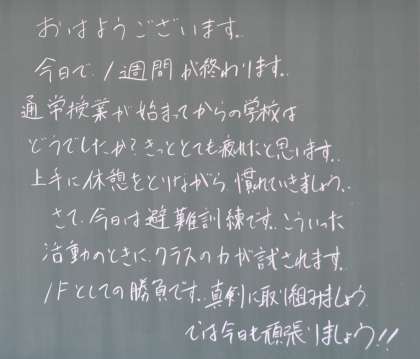 おはようございます。
今日で、1週間が終わります。
通常授業が始まってからの学校は
どうでしたか？きっととても疲れたと思います。
上手に休憩をとりながら、慣れていきましょう。
さて、今日は避難訓練です。こういった
活動のときに、クラスの力が試されます。
1Fとしての勝負です。真剣に取り組みましょう。
では今日も頑張りましょう!!